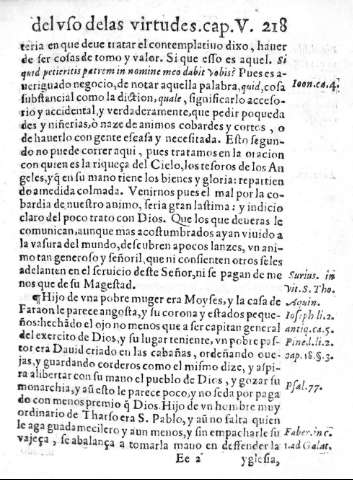 del vso delas virtudes.cap.V. 218
teria en que deue tratar el contemplatiuo dixo, hauer
de ser cosas de tomo y valor. Si que esso es aquel. Si
quid petieritis patrem in nomine meo dabit vobis? Pues es a-
ueriguado negocio, de notar aquella palabra, quid, cosa
Ioan.ca.4.
substancial como la diction, quale, significarlo acceso-
rio y accidental, y verdaderamente, que pedir poqueda
des y niñerias, ò naze de animos cobardes y cortos, o
de hauerlo con gente escasa y necesitada. Esto segun-
do no puede correr aqui, pues tratamos en la oracion
con quien es la riqueça del Cielo, los tesoros de los An
geles, y q̃ en su mano tiene los bienes y gloria: repartien
do a medida colmada. Venirnos pues el mal por la co-
bardia de nuestro animo, seria gran lastima: y indicio
claro del poco trato con Dios. Que los que deueras le
comunican, aunque mas acostumbrados ayan viuido a
la vasura del mundo, descubren apocos lanzes, vn ani-
mo tan generoso y señoril, que ni consienten otros seles
adelanten en el seruicio deste Señor, ni se pagan de me
nos que de su Magestad.
Surius. in
Vit. S. Tho.
Aquin.
¶Hijo de vna pobre muger era Moyses, y la casa de
Faraon le parece angosta, y su corona y estados peque-
ños: hechãdo el ojo no menos que a ser capitan general
del exercito de Dios, y su lugar teniente, vn pobre pas-
tor era Dauid criado en las cabañas, ordeñando oue-
jas, y guardando corderos como el mismo dize, y aspi-
ra alibertar con su mano el pueblo de Dios, y gozar su
monarchia, y aũ esto le parece poco, y no se da por paga
do con menos premio q̃ Dios. Hijo de vn hombre muy
ordinario de Tharso era S. Pablo, y aũ no falta quien
le aga guadamecilero y aun menos, y sin empacharle su
vajeça, se abalança a tomar la mano en deffender la
Ioseph li.2.
antiq.ca.5.
Pined.li.2.
cap.18.§.3.
Psal.77.
Faber. in c.
1.ad Galat.
Ee 2 yglesia,